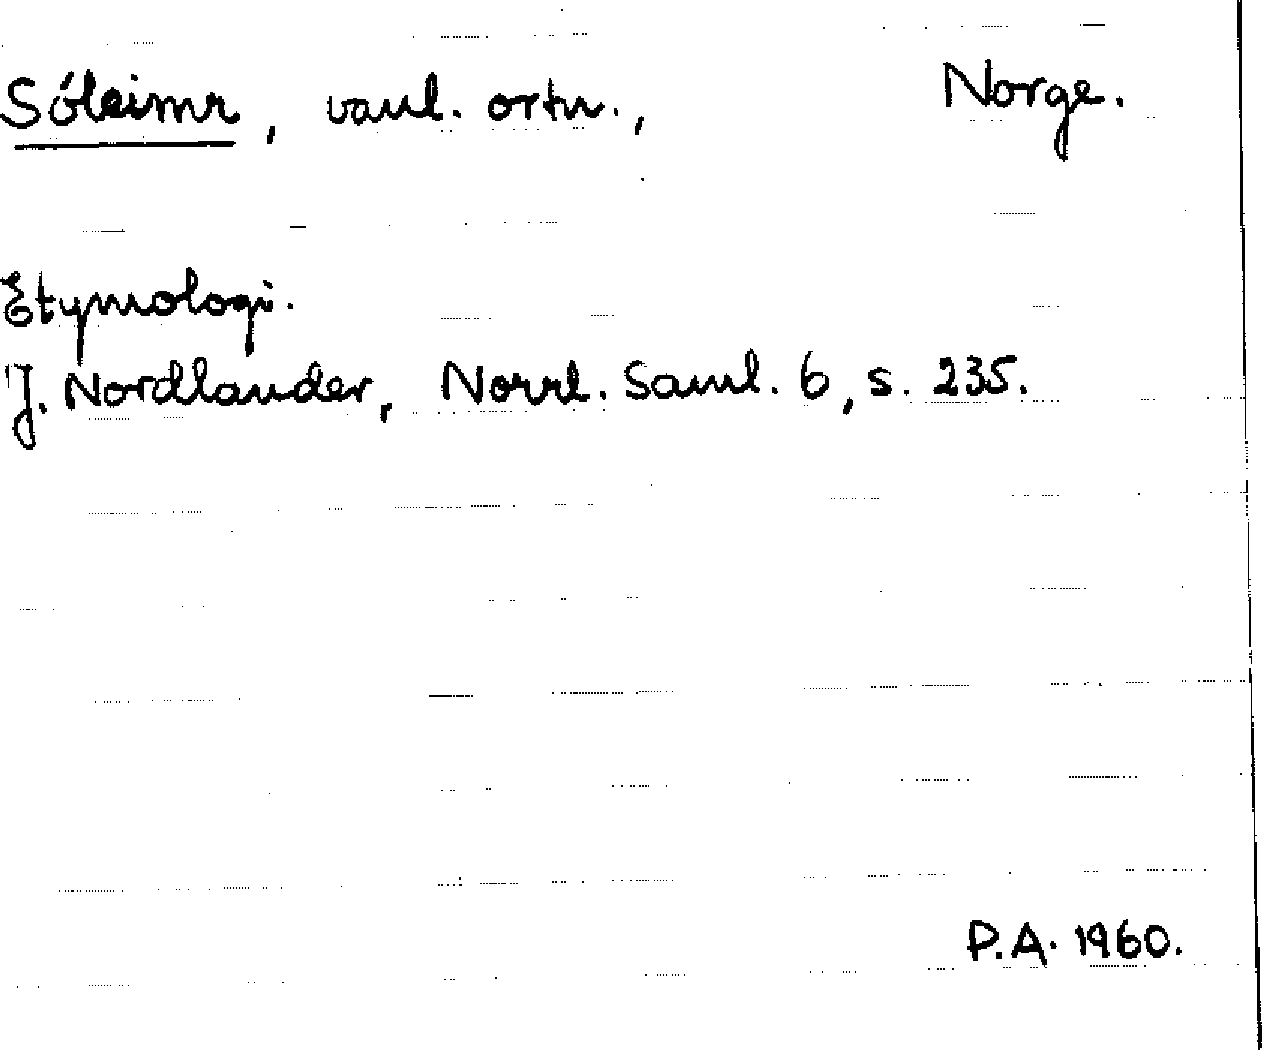 Sóleimr, vanl. ortn., Norge.
Etymologi.
J. Nordlander, Norrl. Saml. 6, s. 235.
P.A. 1960.